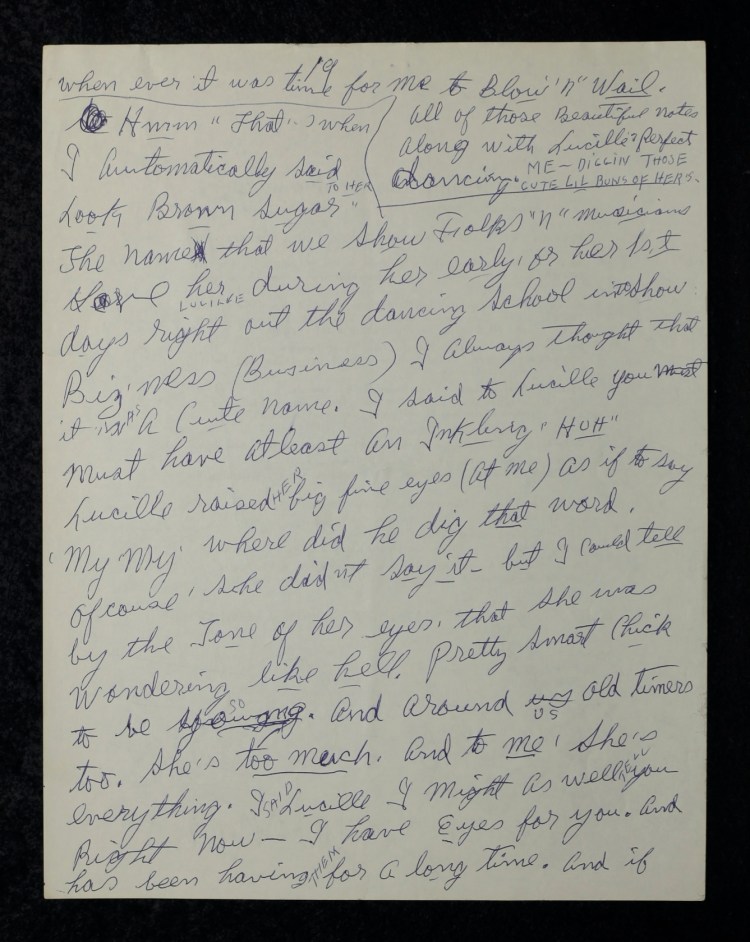 19
when ever it was time for me to Blow 'n" Wail.
all of those Beautiful notes
along with Lucille's Perfect
dancing. ME – DIGGIN THOSE
CUTE LIL BUNS OF HER'S.
Hmm " That " when
I Auutomatically said
TO HER
Look Brown Sugar"
The name that we Show Folks "n" musicians
her during her early, or her 1st
LUCILLE
days right out the dancing school into Show
Biz'ness (Business) I Always thought that
it WAS A Cute Name. I said to Lucille you must
must have atleast an Inkling "HUH"
Lucille raised HER big fine eyes (at me) as if to say
'My My' where did he dig that word.
ofcouse' she didn't say it – but I could tell
by the Tone of her eyes, that she was
wondering like hell. Pretty Smart Chick
to be SO young. And around US old timers
too. She's too much. And to me, she's
everything. I SAID Lucille I might as well TELL you
Right Now – I have Eyes for you. And
has been having THEM for a long time. And if